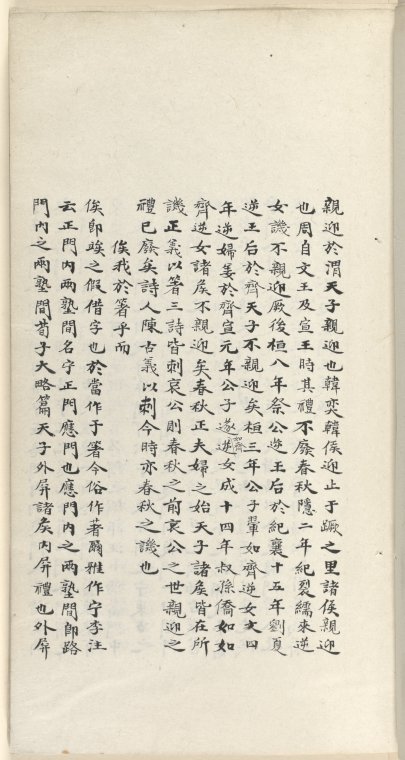 親迎於渭天子親迎也韓奕韓侯迎止于蹶之里諸侯親迎
也周自文王及宣王時其禮不廢春秋隱二年紀裂繻來逆
女譏不親迎厥後桓八年祭公逆王后於紀襄十五年劉夏
逆王后於齊天子不親迎矣桓三年公子翬如齊逆女文四
年逆婦姜於齊宣元年公子遂如齊逆女成十四年叔孫僑如如
齊逆女諸侯不親迎矣春秋正夫婦之始天子諸侯皆在所
譏正義以箸三詩皆刺哀公則春秋之前哀公之世親迎之
禮已廢矣詩人陳古義以刺今時亦春秋之譏也
俟我於箸乎而
俟卽竢之假借字也於當作于箸今俗作著爾雅作宁李注
云正門內兩塾間名宁正門應門也應門內之兩塾間卽路
門內之兩塾間荀子大略篇天子外屏諸侯內屏禮也外屏